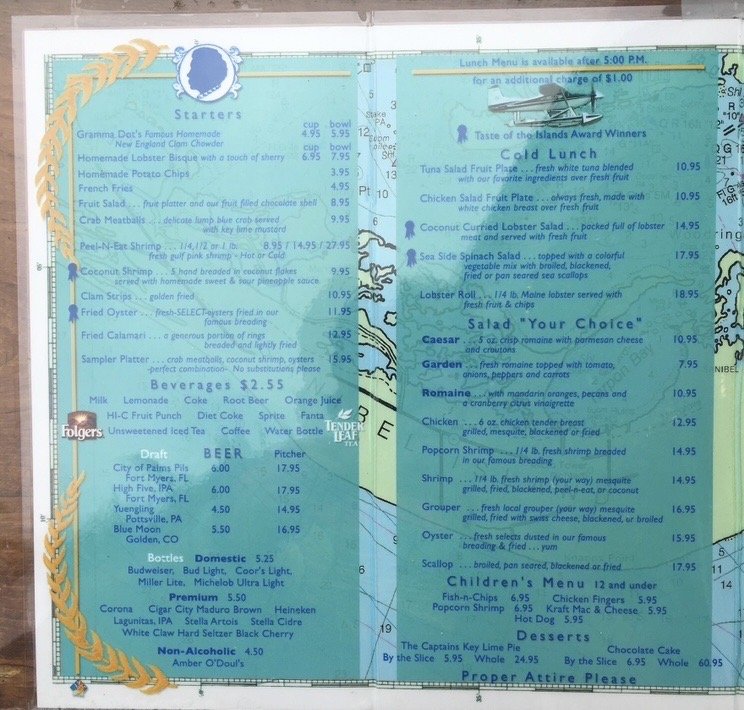 Starters
cup bowl
Gramma Dot's Famous Homemade 4.95 5.95
New England Clam Chowder
cup bowl
Homemade Lobster Bisque with a touch of sherry 6.95 7.95
Homemade Potato Chips 3.95
French Fries 4.95
Fruit Salad . . . fruit platter and our fruit filled chocolate shell 8.95
Crab Meatballs . . . delicate lump blue crab served 9.95
with key lime mustard
Peel-N-Eat Shrimp . . . 1/4, 1/2 or 1 lb. 8.95 / 14.95 / 27.95
fresh gulf pink shrimp - Hot or Cold
Coconut Shrimp . . . 5 hand breaded in coconut flakes 9.95
served with homemade sweet & sour pineapple sauce
Clam Strips . . . golden fried 10.95
Fried Oyster . . . fresh SELECT oysters fried in our 11.95
famous breading
Fried Calamari . . . a generous portion of rings 12.95
breaded and lightly fried
Sampler Platter . . . crab meatballs, coconut shrimp, oysters 15.95
-perfect combination- No substitutions please
Beverages $2.55
Milk Lemonade Coke Root Beer Orange Juice
HI-C Fruit Punch Diet Coke Sprite Fanta
Folgers Unsweetened Iced Tea Coffee Water Bottle TENDER LEAF TEA
Draft BEER Pitcher
City of Palms Pils 6.00 17.95
Fort Myers, FL
High Five, IPA 6.00 17.95
Fort Myers, FL
Yuengling 4.50 14.95
Pottsville, PA
Blue Moon 5.50 16.95
Golden, CO
Bottles Domestic 5.25
Budweiser, Bud Light, Coor's Light,
Miller Lite, Michelob Ultra Light
Premium 5.50
Corona Cigar City Maduro Brown Heineken
Lagunitas, IPA Stella Artois Stella Cidre
White Claw Hard Seltzer Black Cherry
Non-Alcoholic 4.50
Amber O'Doul's
Lunch Menu is available after 5:00 P.M.
for an additional charge of $1.00
Taste of the Islands Award Winners
Cold Lunch
Tuna Salad Fruit Plate . . . fresh white tuna blended 10.95
with our favorite ingredients over fresh fruit
Chicken Salad Fruit Plate . . . always fresh, made with 10.95
white chicken breast over fresh fruit
Coconut Curried Lobster Salad . . . packed full of lobster 14.95
meat and served with fresh fruit
Sea Side Spinach Salad . . . topped with a colorful 17.95
vegetable mix with broiled, blackened,
fried or pan seared sea scallops
Lobster Roll . . . 1/4 lb. Maine lobster served with 18.95
fresh fruit & chips
Salad "Your Choice"
Caesar . . . 5 oz. crisp romaine with parmesan cheese 10.95
and croutons
Garden . . . fresh romaine topped with tomato, 7.95
onions, peppers and carrots
Romaine . . . with mandarin oranges, pecans and 10.95
a cranberry citrus vinaigrette
Chicken . . . 6 oz. chicken tender breast 12.95
grilled, mesquite, blackened or fried
Popcorn Shrimp . . . 1/4 lb. fresh shrimp breaded 14.95
in our famous breading
Shrimp . . . 1/4 lb. fresh shrimp (your way) mesquite 14.95
grilled, fried, blackened, peel-n-eat, or coconut
Grouper . . . fresh local grouper (your way) mesquite 16.95
grilled, fried with swiss cheese, blackened, or broiled
Oyster . . . fresh selects dusted in our famous 15.95
breading & fried . . . yum
Scallop . . . broiled, pan seared, blackened or fried 17.95
Children's Menu 12 and under
Fish-n-Chips 6.95 Chicken Fingers 5.95
Popcorn Shrimp 6.95 Kraft Mac & Cheese 5.95
Hot Dog 5.95
Desserts
The Captains Key Lime Pie Chocolate Cake
By the Slice 5.95 Whole 24.95 By the Slice 6.95 Whole 60.95
Proper Attire Please